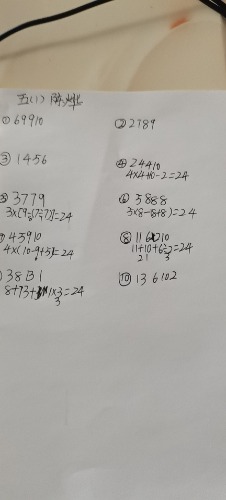 五(1)
① 69910
② 2789
③ 1456
④ 24410
4×4+10-2=24
3779
3×[9-(7÷7)]=24
⑥ 3888
3×8-(8÷8)=24
45910
4×(10-9+5)=24
⑧ 11 6 2 10
11+10+6÷2=24
21 3
38131
8+13+1×3=24
3
⑩ 136102